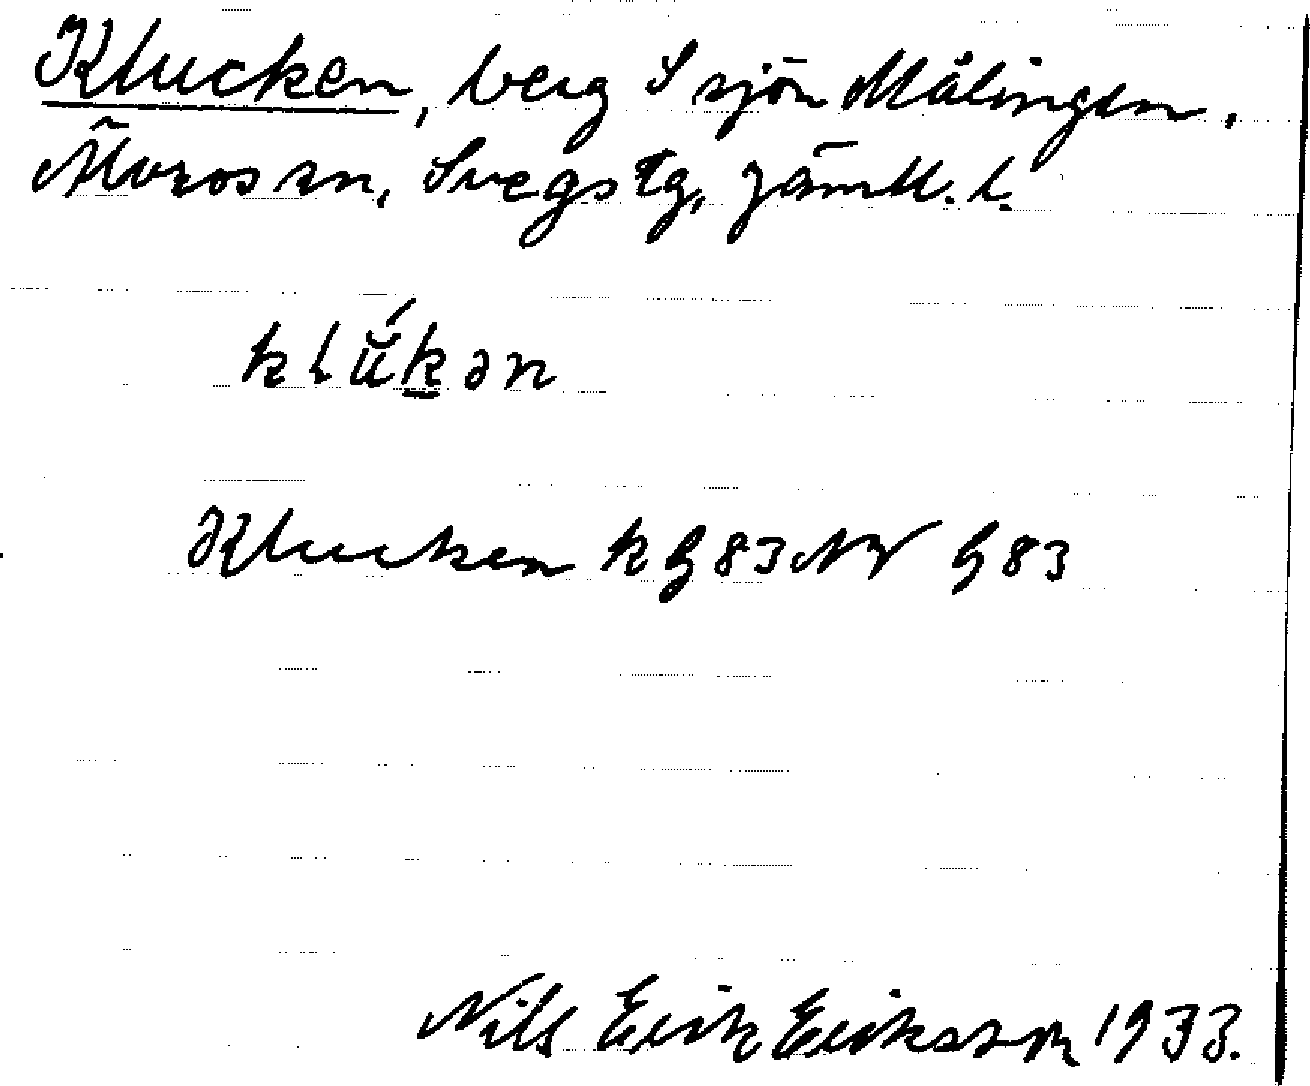 Klucken, berg S sjön Målingen,
Överhogdals sn, Svegs tg, Jämtl. l.
klŭ́k̠ən
Klucken k G 83 NV G 83
Nils Erik Eriksson 1933.